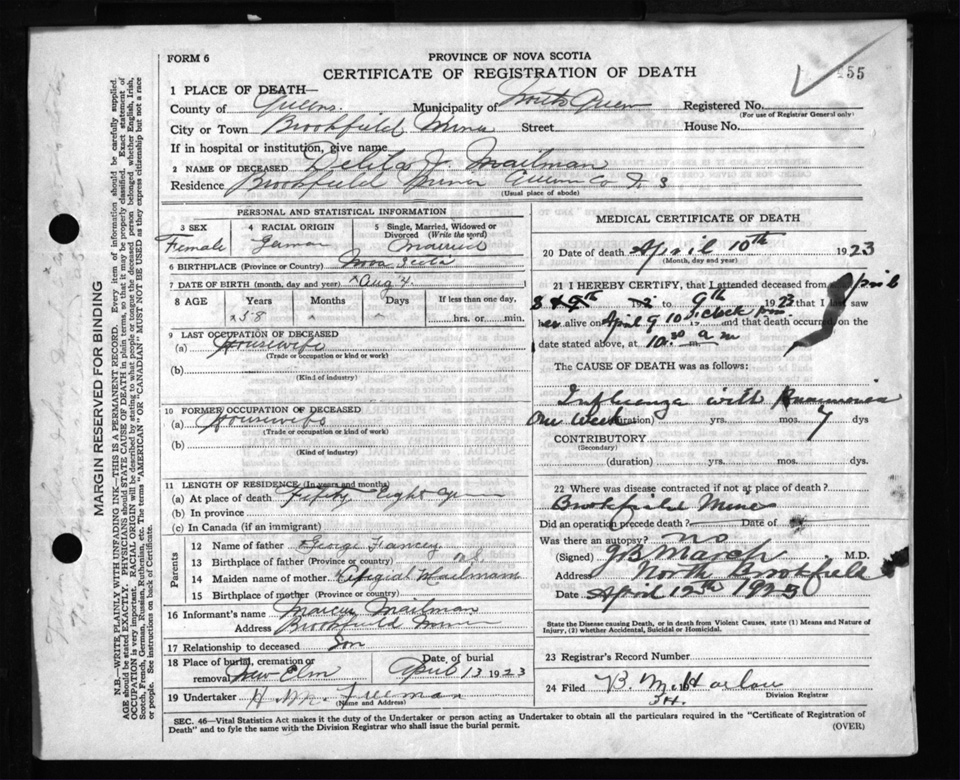 FORM 6
PROVINCE OF NOVA SCOTIA
CERTIFICATE OF REGISTRATION OF DEATH
55
1 PLACE OF DEATH—
County of Queens. Municipality of North Queen Registered No.
(For use of Registrar General only)
City or Town Brookfield Mine Street House No.
If in hospital or institution, give name
2 NAME OF DECEASED Delila J. Mailman
Residence Brookfield Mines Queens Co N S
(Usual place of abode)
PERSONAL AND STATISTICAL INFORMATION
3 SEX 4 RACIAL ORIGIN 5 Single, Married, Widowed or Divorced (Write the word)
Female German Married
6 BIRTHPLACE (Province or Country) Nova Scotia
7 DATE OF BIRTH (month, day and year) Aug 4
8 AGE Years Months Days If less than one day,
58 hrs. or min.
9 LAST OCCUPATION OF DECEASED
(a) Housewife
(Trade or occupation or kind or work)
(b)
(Kind of industry)
10 FORMER OCCUPATION OF DECEASED
(a) Housewife
(Trade or occupation or kind of work)
(b)
(Kind of industry)
11 LENGTH OF RESIDENCE (In years and months)
(a) At place of death Fifty eight
(b) In province
(c) In Canada (if an immigrant)
Parents
12 Name of father George
13 Birthplace of father (Province or country)
14 Maiden name of mother Mailman
15 Birthplace of mother (Province or country)
16 Informant's name Marcus Mailman
Address Brookfield Mines
17 Relationship to deceased Son
18 Place of burial, cremation or removal New Elm Date of burial April 13 1923
19 Undertaker Freeman
(Name and Address)
MEDICAL CERTIFICATE OF DEATH
20 Date of death April 10th 1923
(Month, day and year)
21 I HEREBY CERTIFY, that I attended deceased from April
8 & 9th 192 to 9th 1923 that I last saw
her alive on April 9 10 o'clock pm and that death occurred on the
date stated above, at 10.30 a m
The CAUSE OF DEATH was as follows:
Influenza with Pneumonia
One Week (duration) yrs. mos. 7 dys
CONTRIBUTORY
(Secondary)
(duration) yrs. mos. dys.
22 Where was disease contracted if not at place of death?
Brookfield Mine
Did an operation precede death? Date of
Was there an autopsy? no
(Signed) March M.D.
Address North Brookfield
Date April 12th 1923
State the Disease causing Death, or in death from Violent Causes, state (1) Means and Nature of Injury, (2) whether Accidental, Suicidal or Homicidal.
23 Registrar's Record Number
24 Filed B. Harlow
Division Registrar
SEC. 46—Vital Statistics Act makes it the duty of the Undertaker or person acting as Undertaker to obtain all the particulars required in the "Certificate of Registration of
Death" and to fyle the same with the Division Registrar who shall issue the burial permit.
(OVER)
MARGIN RESERVED FOR BINDING
N.B.—WRITE PLAINLY WITH UNFADING INK—THIS IS A PERMANENT RECORD. Every item of information should be carefully supplied.
AGE should be stated EXACTLY. PHYSICIANS should STATE CAUSE OF DEATH in plain terms, so that it may be properly classified. Exact statement of
OCCUPATION is very important. RACIAL ORIGIN will be described by stating to what people or tongue the deceased person belonged whether English, Irish,
Scotch, French, German, Russian, Ruthenian, etc. The terms "AMERICAN" OR "CANADIAN" MUST NOT BE USED as they express citizenship but not a race
or people. See instructions on back of Certificate.